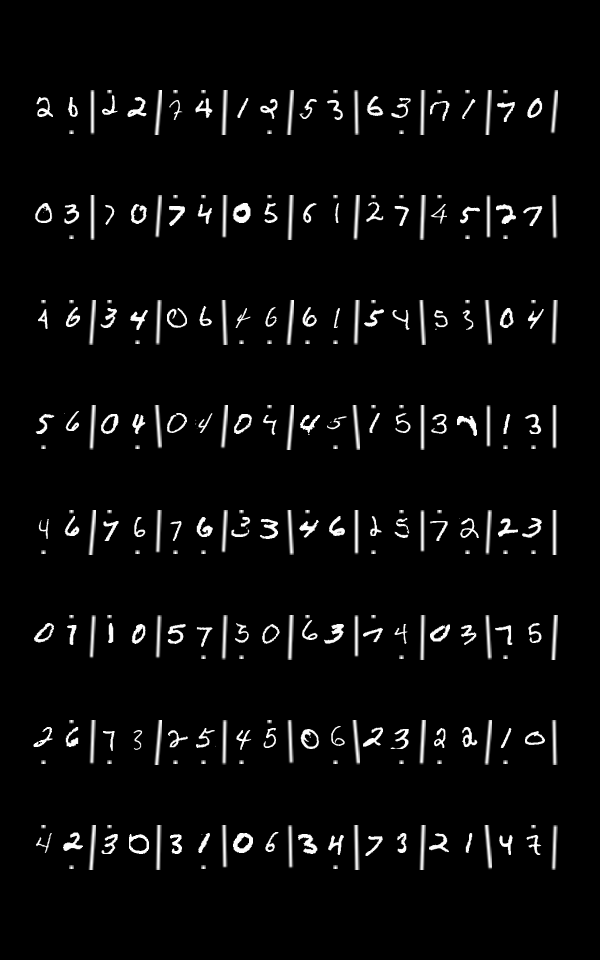 2 6 | 2 2 | 7 4 | 1 2 | 5 3 | 6 3 | 7 1 | 7 0 |
0 3 | 7 0 | 7 4 | 0 5 | 6 1 | 2 7 | 4 5 | 2 7 |
4 6 | 3 4 | 0 6 | 4 6 | 6 1 | 5 4 | 5 3 | 0 4 |
5 6 | 0 4 | 0 4 | 0 4 | 4 5 | 1 5 | 3 | 1 3 |
4 6 | 7 6 | 7 6 | 3 3 | 4 6 | 2 5 | 7 2 | 2 3 |
0 7 | 1 0 | 5 7 | 3 0 | 6 3 | 7 4 | 0 3 | 7 5 |
2 6 | 7 3 | 2 5 | 4 5 | 0 6 | 2 3 | 2 2 | 1 0 |
4 2 | 3 0 | 3 1 | 0 6 | 3 4 | 7 3 | 2 1 | 4 7 |